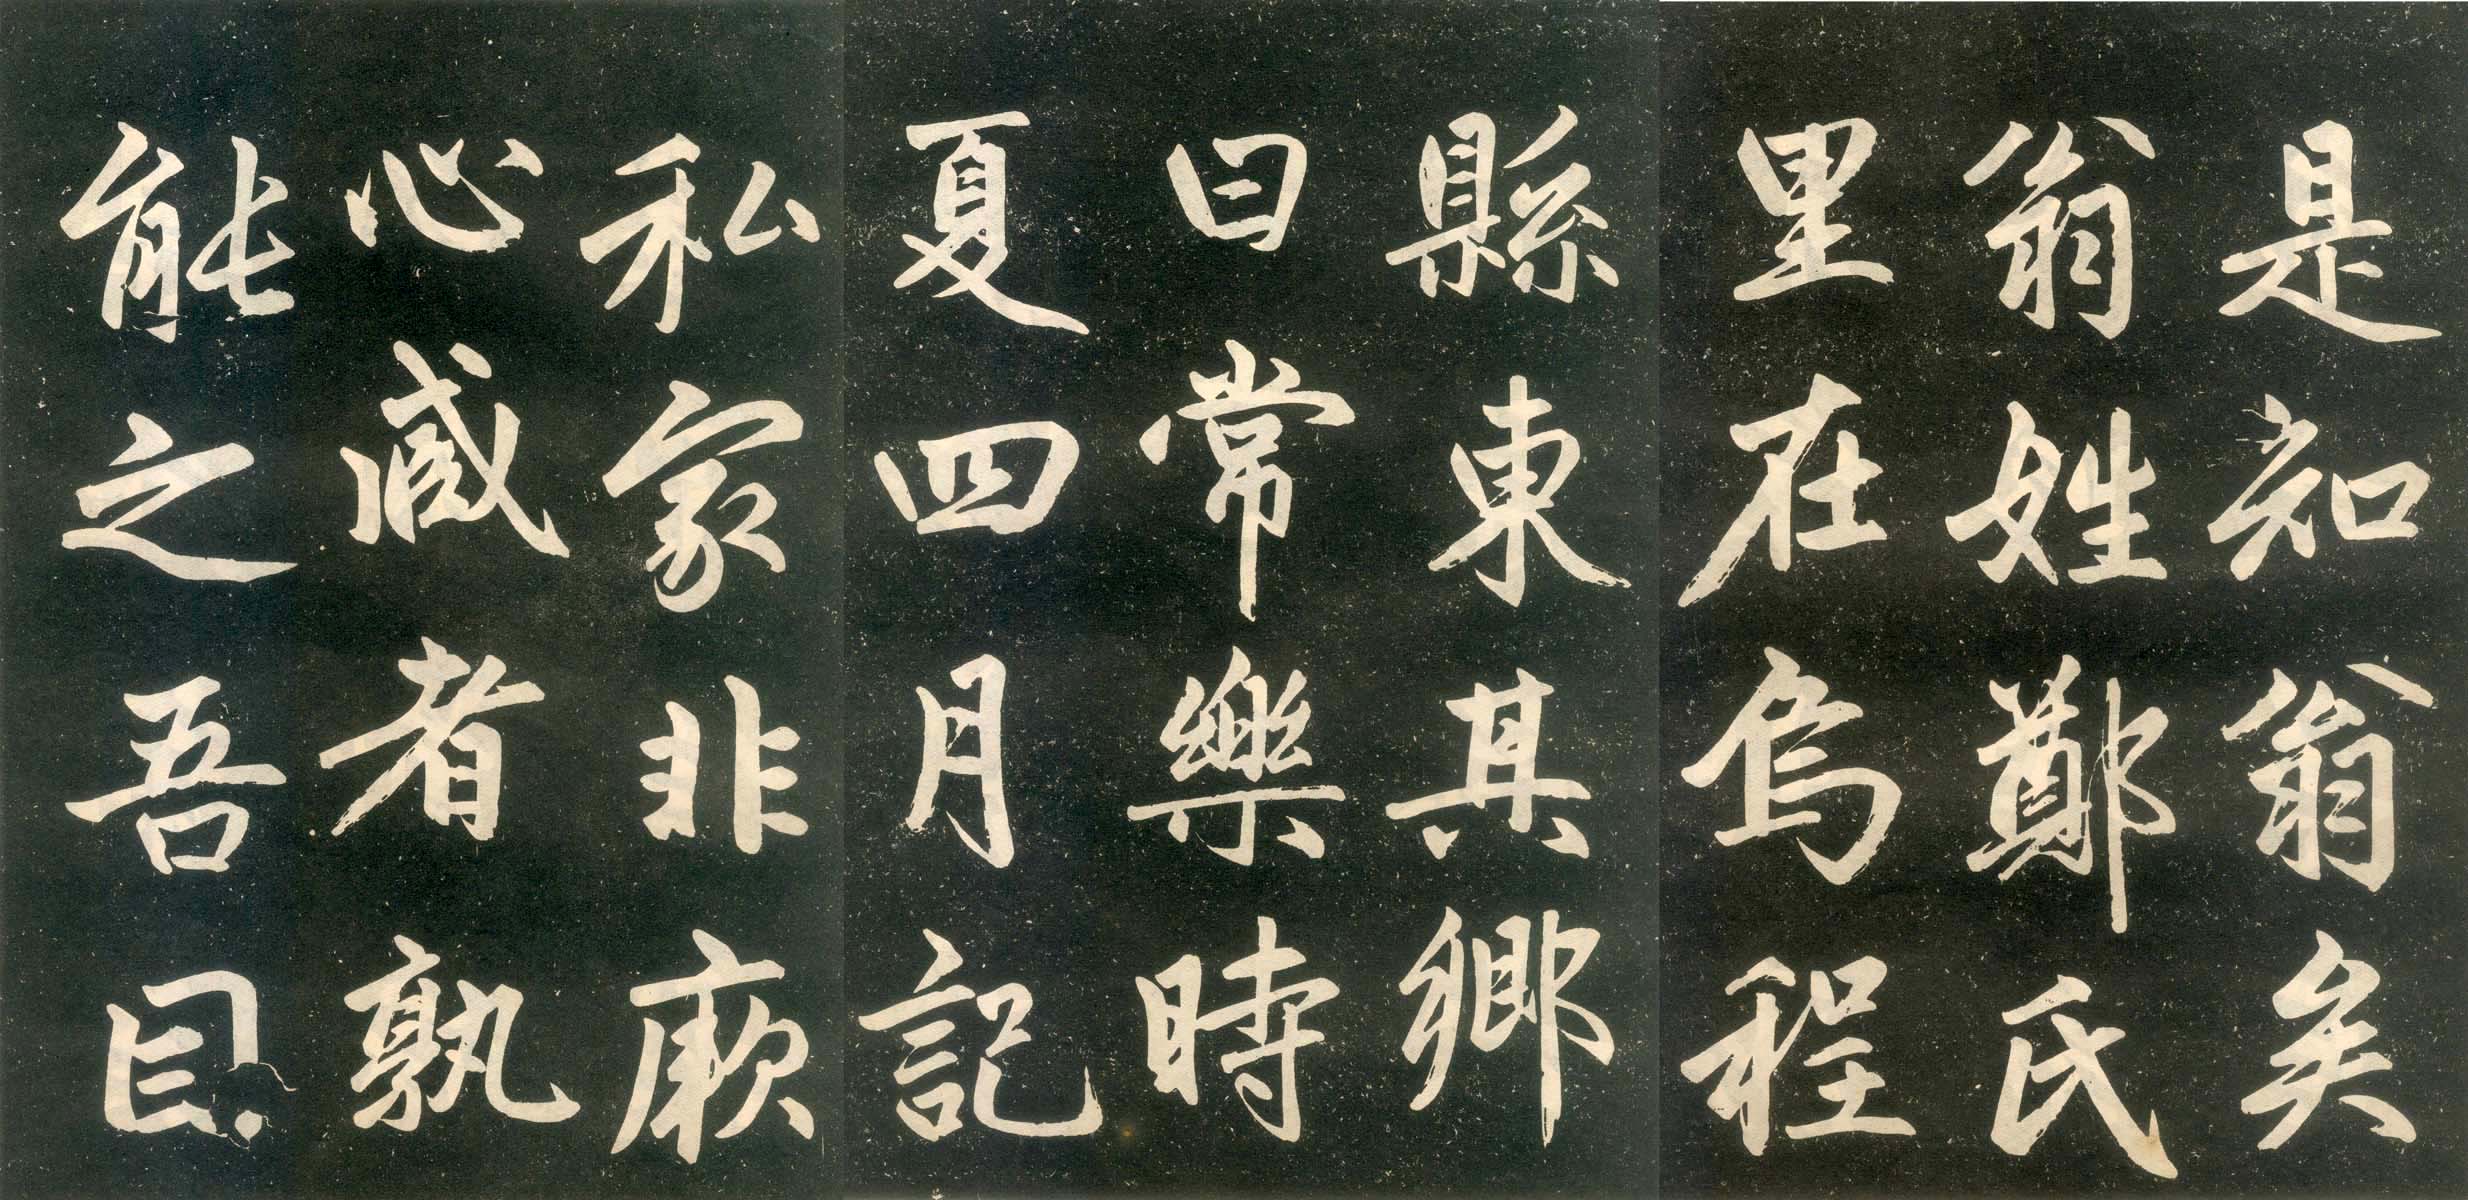 是知翁矣
翁姓鄭氏
里在烏程
縣東其鄉
曰常樂時
夏四月記
私家非厥
心臧者孰
能之吾㠯